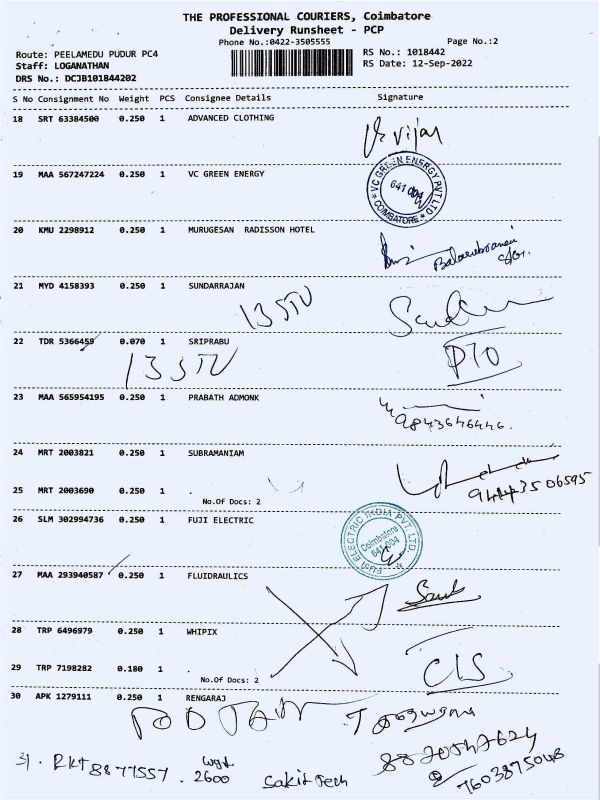 THE PROFESSIONAL COURIERS, Coimbatore
Delivery Runsheet - PCP
Phone No.:0422-3505555
Page No.:2
Route: PEELAMEDU PUDUR PC4
RS No.: 1018442
Staff: LOGANATHAN
RS Date: 12-Sep-2022
DRS No.: DCJB101844202
S No Consignment No Weight PCS Consignee Details Signature
18 SRT 63384500 0.250 1 ADVANCED CLOTHING
vijay
19 MAA 567247224 0.250 1 VC GREEN ENERGY
VC GREEN ENERGY PVT LTD
641 004
COIMBATORE
20 KMU 2298912 0.250 1 MURUGESAN RADISSON HOTEL
21 MYD 4158393 0.250 1 SUNDARRAJAN
22 TDR 5366459 0.070 1 SRIPRABU
PTO
23 MAA 565954195 0.250 1 PRABATH ADMONK
9843646446.
24 MRT 2003821 0.250 1 SUBRAMANIAM
9443506595
25 MRT 2003690 0.250 1 .
No.Of Docs: 2
26 SLM 302994736 0.250 1 FUJI ELECTRIC
FUJI ELECTRIC INDIA PVT. LTD
Coimbatore
641 004
27 MAA 293940587 0.250 1 FLUIDRAULICS
28 TRP 6496979 0.250 1 WHIPIX
29 TRP 7198282 0.180 1 .
No.Of Docs: 2
CLS
30 APK 1279111 0.250 1 RENGARAJ
31. RKT 8877557 . 2600 Sakit Tech
7603875048